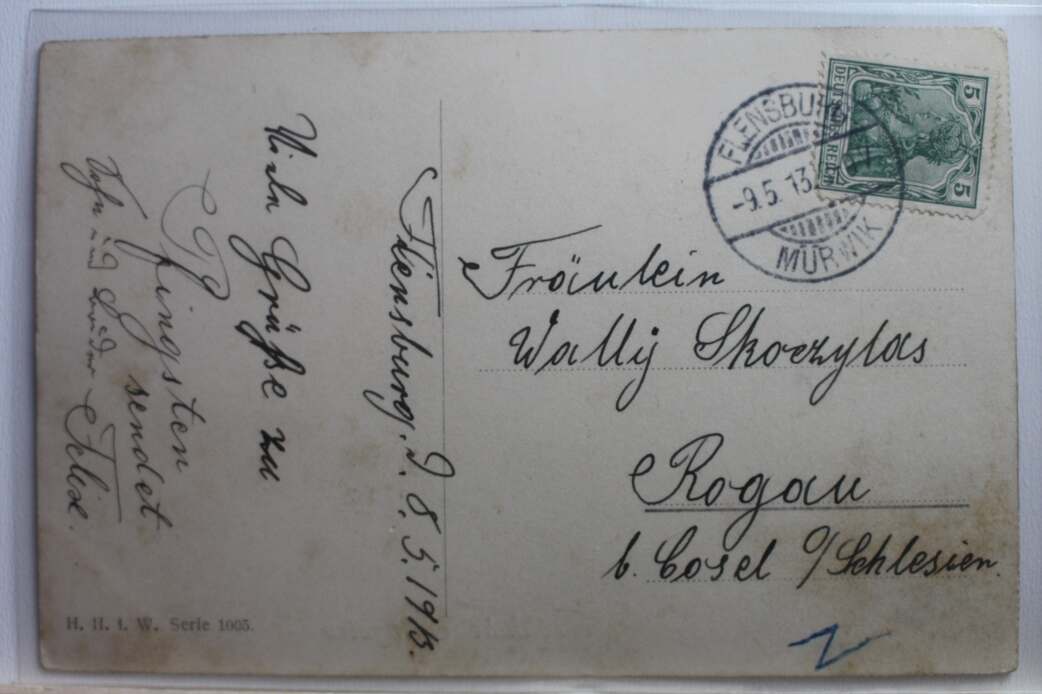 Flensburg. d. 8. 5. 1913.
Viele Grüße zu
Pfingsten
sendet
und Bruder Felix.
H. H. i. W. Serie 1005.
DEUTSCHES REICH
5
5
FLENSBURG
-9.5.13.
MÜRWIK
Fräulein
Wally Skoczylas
Rogau
b. Cosel O/Schlesien.